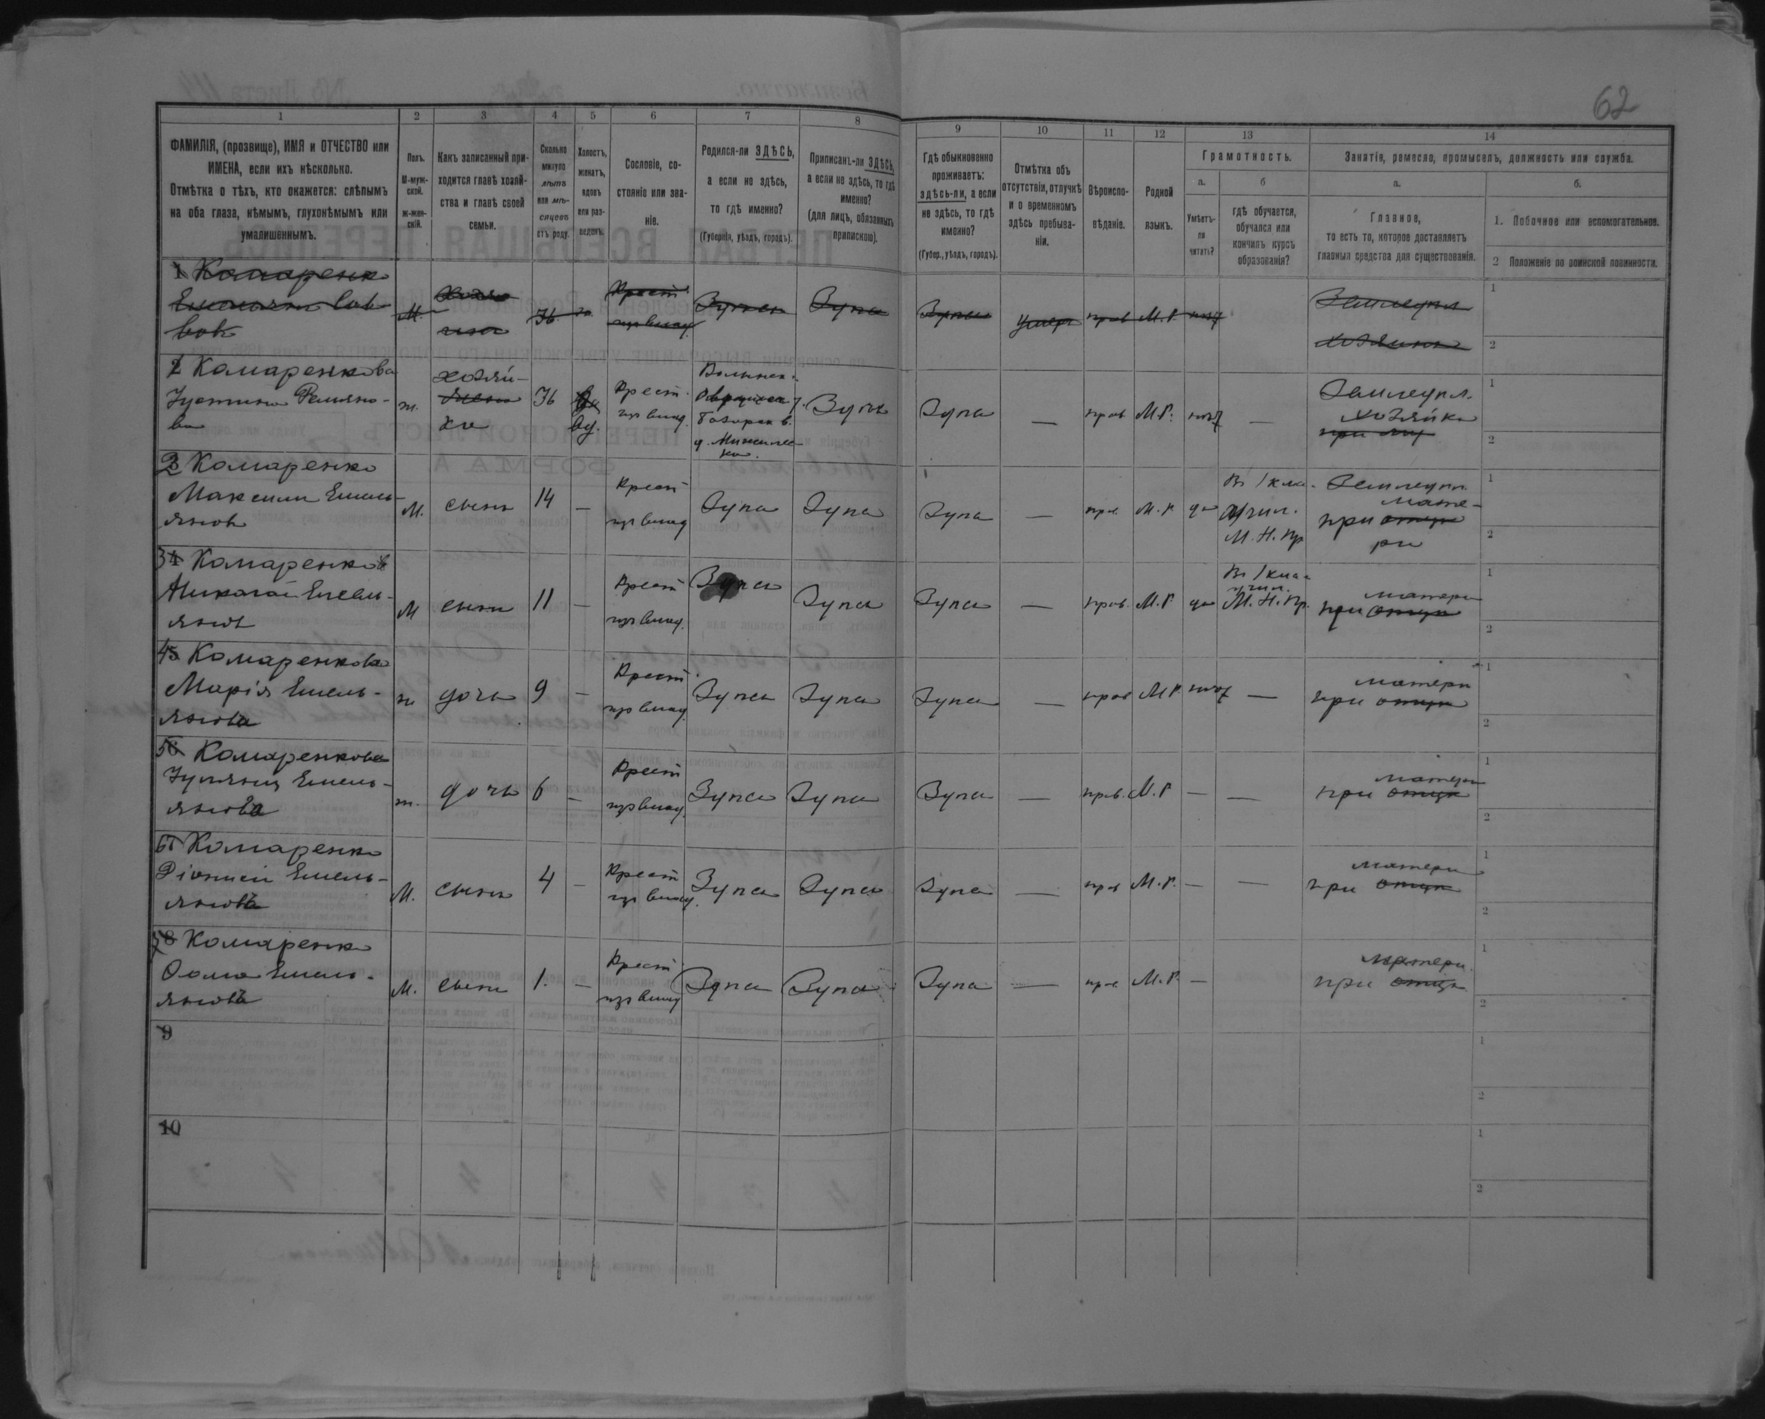 62
1 2 3 4 5 6 7 8 9 10 11 12 13 14
ФАМИЛІЯ, (прозвище), ИМЯ и ОТЧЕСТВО или
ИМЕНА, если ихъ нѣсколько.
Отмѣтка о тѣхъ, кто окажется: слѣпымъ
на оба глаза, нѣмымъ, глухонѣмымъ или
умалишеннымъ.
Полъ.
М-муж-
ской.
ж-жен-
скій.
Какъ записанный при-
ходится главѣ хозяй-
ства и главѣ своей
семьи.
Сколько
минуло
лѣтъ
или мѣ-
сяцевъ
отъ роду.
Холостъ,
женатъ,
вдовъ
или раз-
веденъ.
Сословіе, со-
стояніе или зва-
ніе.
Родился-ли ЗДѢСЬ,
а если не здѣсь,
то гдѣ именно?
(Губернія, уѣздъ, городъ).
Приписанъ-ли ЗДѢСЬ,
а если не здѣсь, то гдѣ
именно?
(для лицъ, обязанныхъ
припискою).
Гдѣ обыкновенно
проживаетъ:
здѣсь-ли, а если
не здѣсь, то гдѣ
именно?
(Губер., уѣздъ, городъ).
Отмѣтка объ
отсутствіи, отлучкѣ
и о временномъ
здѣсь пребыва-
ніи.
Вѣроиспо-
вѣданіе.
Родной
языкъ.
Грамотность.
а.
Умѣетъ-
ли
читать?
б
гдѣ обучается,
обучался или
кончилъ курсъ
образованія?
Занятія, ремесло, промыселъ, должность или служба.
а.
Главное,
то есть то, которое доставляетъ
главныя средства для существованія.
б.
1. Побочное или вспомогательное.
2 Положеніе по воинской повинности.
1 Комаренко
Емельянъ Сав-
вовъ
М. хозяинъ 36 Крест. Зупа Зупа Зупа Умеръ прав М.Р. Землецѣл хозяинъ
2 Комаренкова
Устина
ж. хозяй-
ка 36 вд. Крест. Волынск. Зупа Зупа — прав М.Р. нѣт — Землецѣл. хозяйка
2 Комаренко
Максимъ Емель-
яновъ
М. сынъ 14 — Крест Зупа Зупа Зупа — прв М.Р. да Въ 1 клас. учил. М.Н.пр Землецѣл при мате-
ри
3 Комаренко
Николай Емель-
яновъ
М сынъ 11 — Крест Зупа Зупа Зупа — прав. М.Р да Въ 1 клас учил. М.Н.пр. при матери
4 Комаренкова
Марія Емель-
янова
ж дочь 9 — Крест Зупа Зупа Зупа — прав М.Р. нѣт — при матери
5 Комаренкова
Емель-
янова
ж. дочь 6 — Крест Зупа Зупа Зупа — прв. М.Р — — при матери
6 Комаренко
Діонисій Емель-
яновъ
М. сынъ 4 — Крест Зупа Зупа Зупа — прав М.Р. — — при матери
7 Комаренко
Ѳома Емель-
яновъ
М. сынъ 1. — Крест Зупа Зупа Зупа — прв М.Р. — при матери
9
10